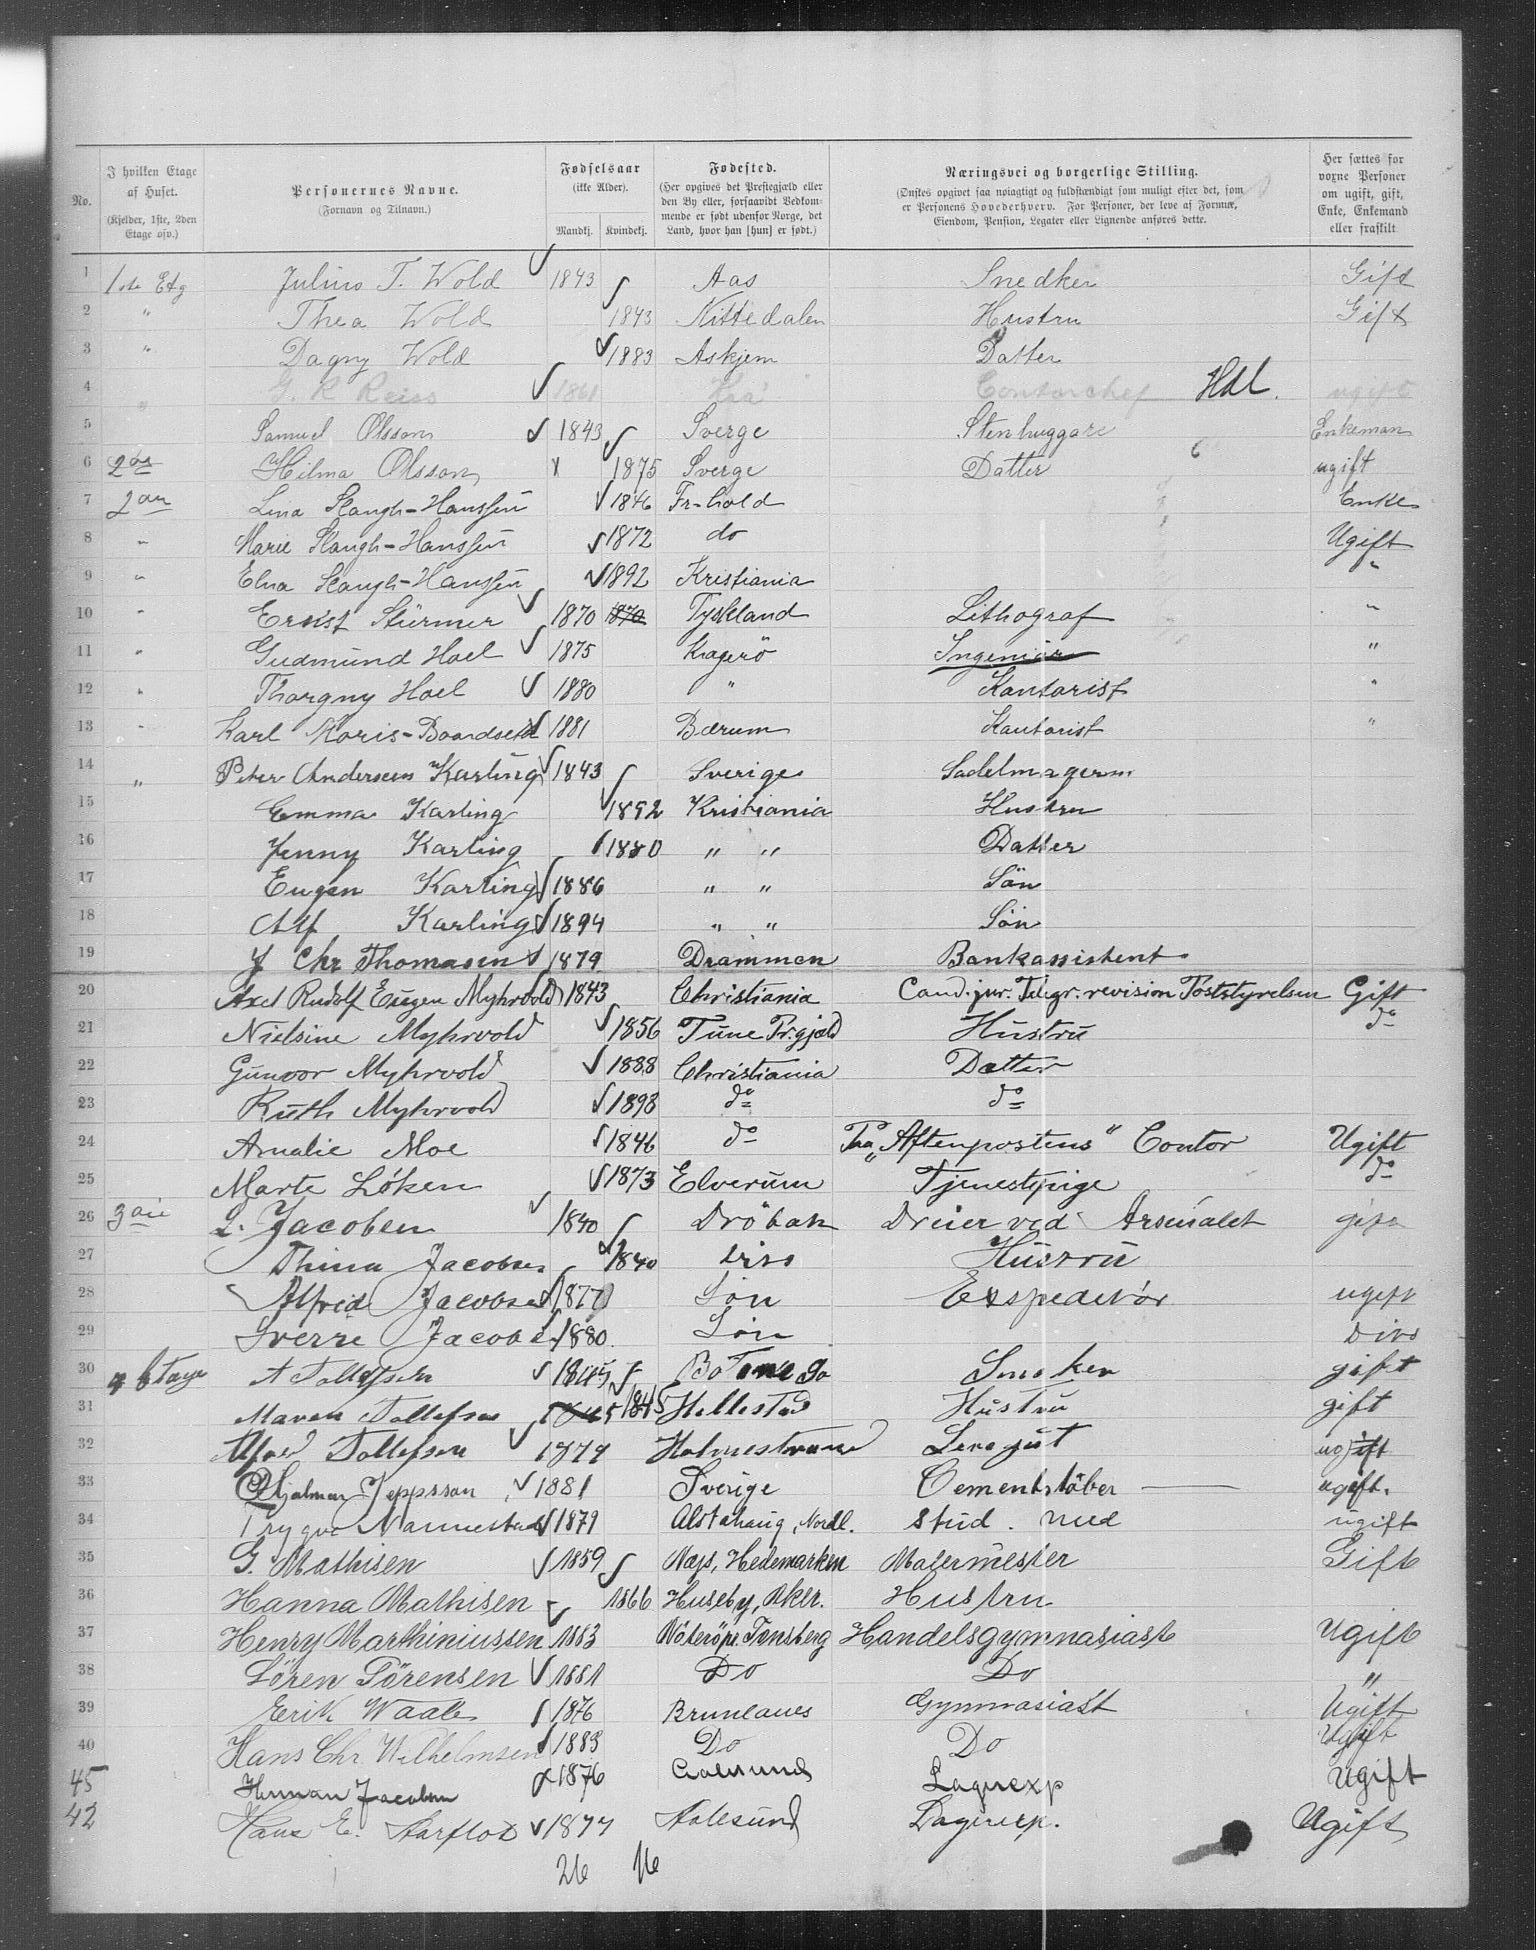 No.
I hvilken Etage af Huset. (Kjelder, 1ste, 2den Etage osv.)
Personernes Navne. (Fornavn og Tilnavn.)
Fødselsaar (ikke Alder). Mandkj. Kvindekj.
Fødested. (Her opgives det Prestegjæld eller den By eller, forsaavidt Vedkommende er født udenfor Norge, det Land, hvor han [hun] er født.)
Næringsvei og borgerlige Stilling. (Ønskes opgivet saa nøiagtigt og fuldstændigt som muligt efter det, som er Personens Hovederhverv. For Personer, der leve af Formue, Eiendom, Pension, Legater eller Lignende anføres dette.
Her sættes for voxne Personer om ugift, gift, Enke, Enkemand eller fraskilt
1 1ste Etg Julius T. Wold 1843 Aas Snedker Gift
2 " Thea Wold 1843 Nittedalen Hustru Gift
3 " Dagny Wold 1883 Askjem Datter
4 " G. R Reiss 1861 Kra Contorchef Hdl. ugift
5 Samuel Olsson 1843 Sverge Stenhuggare Enkeman
6 2den Hilma Olsson x 1875 Sverge Datter 6 ugift
7 Lina Slaugh-Hanssen 1846 Fr-hold Enke
8 " Marie Slaugh-Hanssen 1872 do Ugift
9 " Elna Slaugh-Hanssen 1892 Kristiania "
10 " Ernst Stürmer 1870 1870 Tyskland Lithograf "
11 " Gudmund Hoel 1875 Kragerö Ingeniør "
12 " Thorgny Hoel 1880 " Kantorist "
13 " Karl Koris-Baardseth 1881 Bærum Kantorist "
14 " Peter Anderssen Karling 1843 Sverige Sadelmagerm
15 Emma Karling 1852 Kristiania Hustru
16 Jenny Karling 1880 " " Datter
17 Eugen Karling 1886 " " Sön
18 Alf Karling 1894 " " Sön
19 J Chr Thomasen 1879 Drammen Bankassistent
20 Axel Rudolf Eugen Myhrvold 1843 Christiania Cand. jur. Telegr. revision Poststyrelsen Gift
21 Nielsine Myhrvold 1856 Tune Pr.gjeld Hustru do
22 Gunvor Myhrvold 1888 Christiania Datter
23 Ruth Myhrvold 1898 do do
24 Amalie Moe 1846 do Paa „Aftenpostens" Contor Ugift
25 Marte Löken 1873 Elverum Tjenestpige do
26 L. Jacobsen 1840 Dröbak Dreier ved Arsenalet gift
27 Thina Jacobsen 1840 Hustru
28 Alfred Jacobsen 1877 Søn Expeditör ugift
29 Sverre Jacobsen 1880 Søn
30 4 Etage A Tollefsen 1845 Smoker gift
31 Maren Tollefsen 1845 1845 Hillestad Hustru gift
32 Alfred Tollefsen 1877 Holmestrand ugift
33 Hjalmar Jeppsson 1881 Sverige Cementstöber ugift.
34 Trygve Nannestad 1879 Alstahaug, Nordl. stud. med ugift
35 G. Mathisen 1859 Næs, Hedemarken Malermester Gift
36 Hanna Mathisen 1866 Huseby, Aker. Hustru
37 Henry Marthiniussen 1883 Nöteröpr. Tønsberg Handelsgymnasiast Ugift
38 Sören Sörensen 1881 Do Do "
39 Erik Waale 1876 Brunlanes Gymnasiast Ugift
40 Hans Chr. Wilhelmsen 1883 Do Do Ugift
45 Herman Jacobsen 1876 Aalesund Lagerexp Ugift
42 Hans E. Aarflot 1877 Aalesund Lagerexp. Ugift
26 16